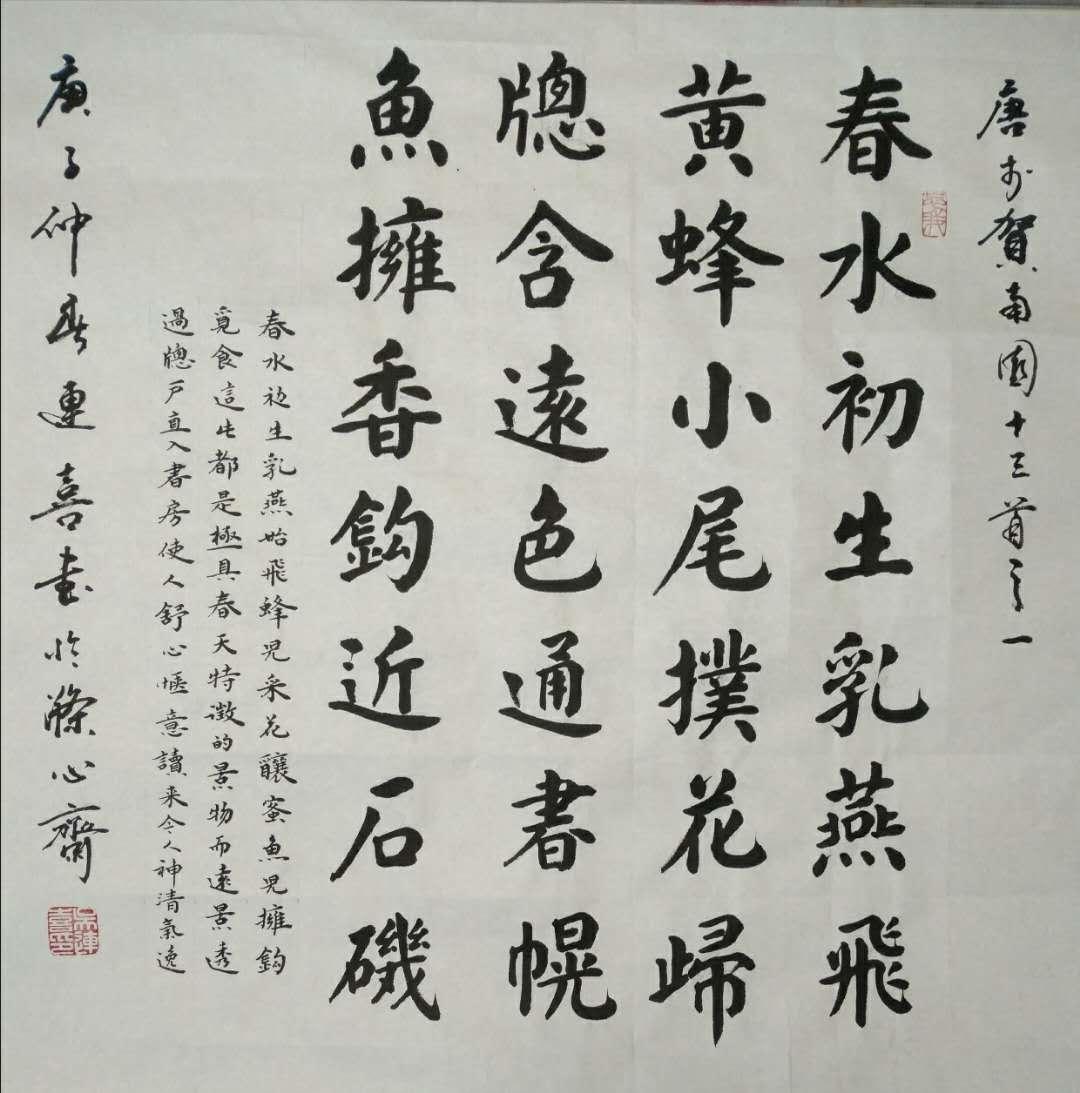 唐李賀南園十三首之一
春水初生乳燕飛
黃蜂小尾撲花歸
牕含遠色通書幌
魚擁香鈎近石磯
春水初生乳燕始飛蜂兒采花釀蜜魚兒擁鈎
覓食這些都是極具春天特徵的景物而遠景透
過牕戶直入書房使人舒心愜意讀来令人神清氣逸
庚子仲春連喜書於滌心齋
吳連喜印